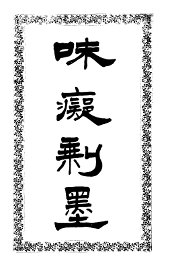 味癡剩墨